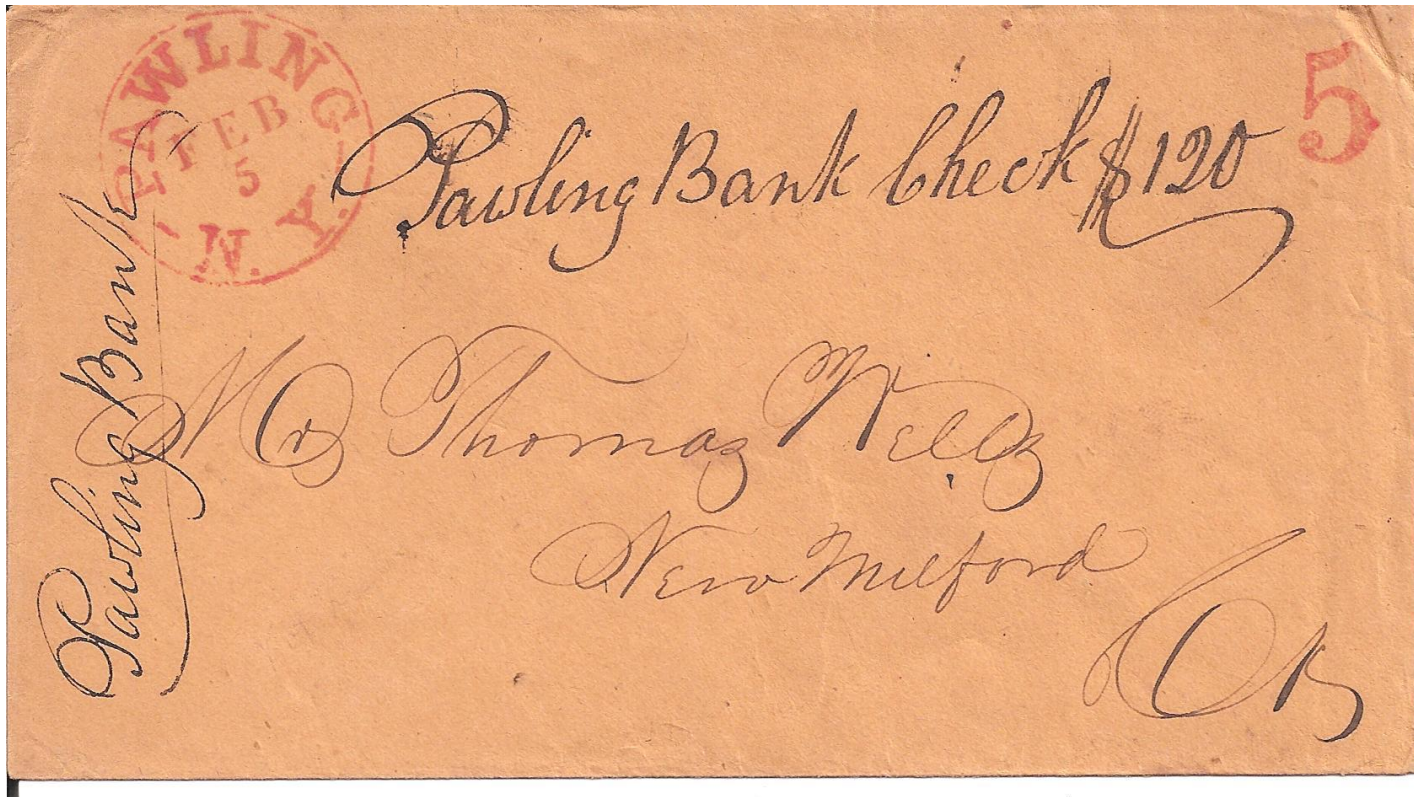 PAWLING
FEB
5
N.Y.
5
Pawling Bank Check $120
Pawling Bank
Mr Thomas Wells
New Milford